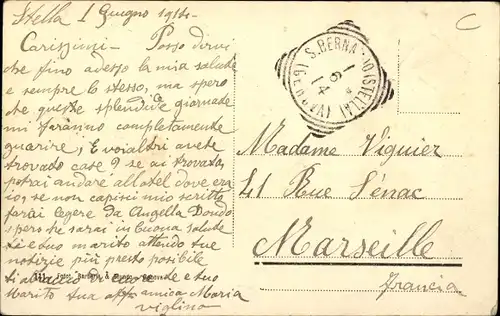 Stella 1 Giugno 1914.
Carissimi- Posso dirvi
che fino adesso la mia salute
è sempre lo stesso, ma spero
che queste splendide giornade
mi faranno completamente
guarire, E voialtri avete
trovado case? se ai trovato,
potrai andare all otel dove era
io, se non capisci mio scritto
farai legere da Angella Dondo
spero che sarai in buona salute
te e tuo marito attendo tue
notizie più presto posibile
ti abbraccio di cuore te e tuo
Marito tua aff amica Maria
viglino
S. BERNARDO (STELLA)
1 6 14
C
Madame Viguier
41 Rue Sénac
Marseille
Francia